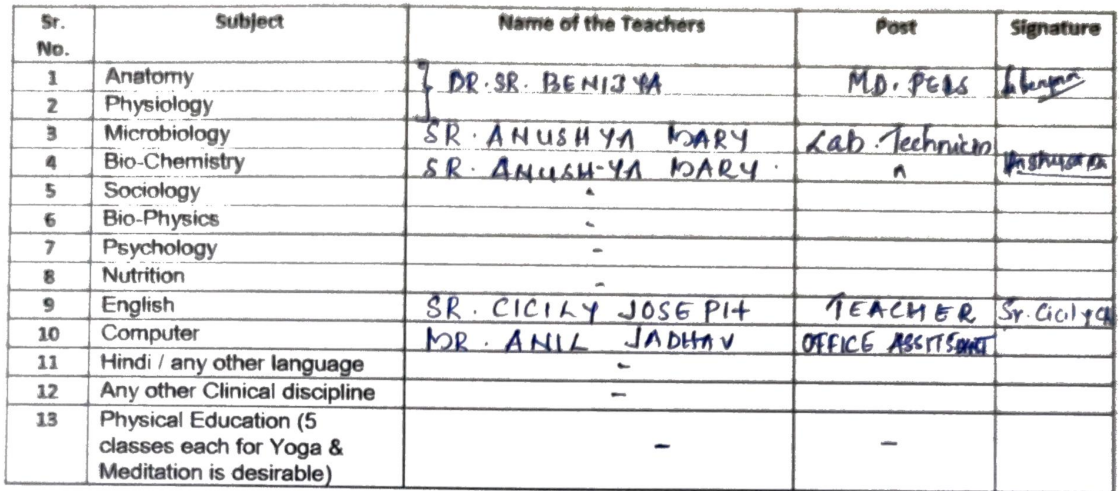 Sr. No. Subject Name of the Teachers Post Signature
1 Anatomy DR. SR. BENISYA M.D. PEDS
2 Physiology
3 Microbiology SR. ANUSHYA MARY Lab. Technician
4 Bio-Chemistry SR. ANUSH-YA MARY.
5 Sociology
6 Bio-Physics
7 Psychology -
8 Nutrition -
9 English SR. CICILY JOSEPH TEACHER Sr. Cicily
10 Computer MR. ANIL JADHAV OFFICE
11 Hindi / any other language -
12 Any other Clinical discipline -
13 Physical Education (5
classes each for Yoga & - -
Meditation is desirable)